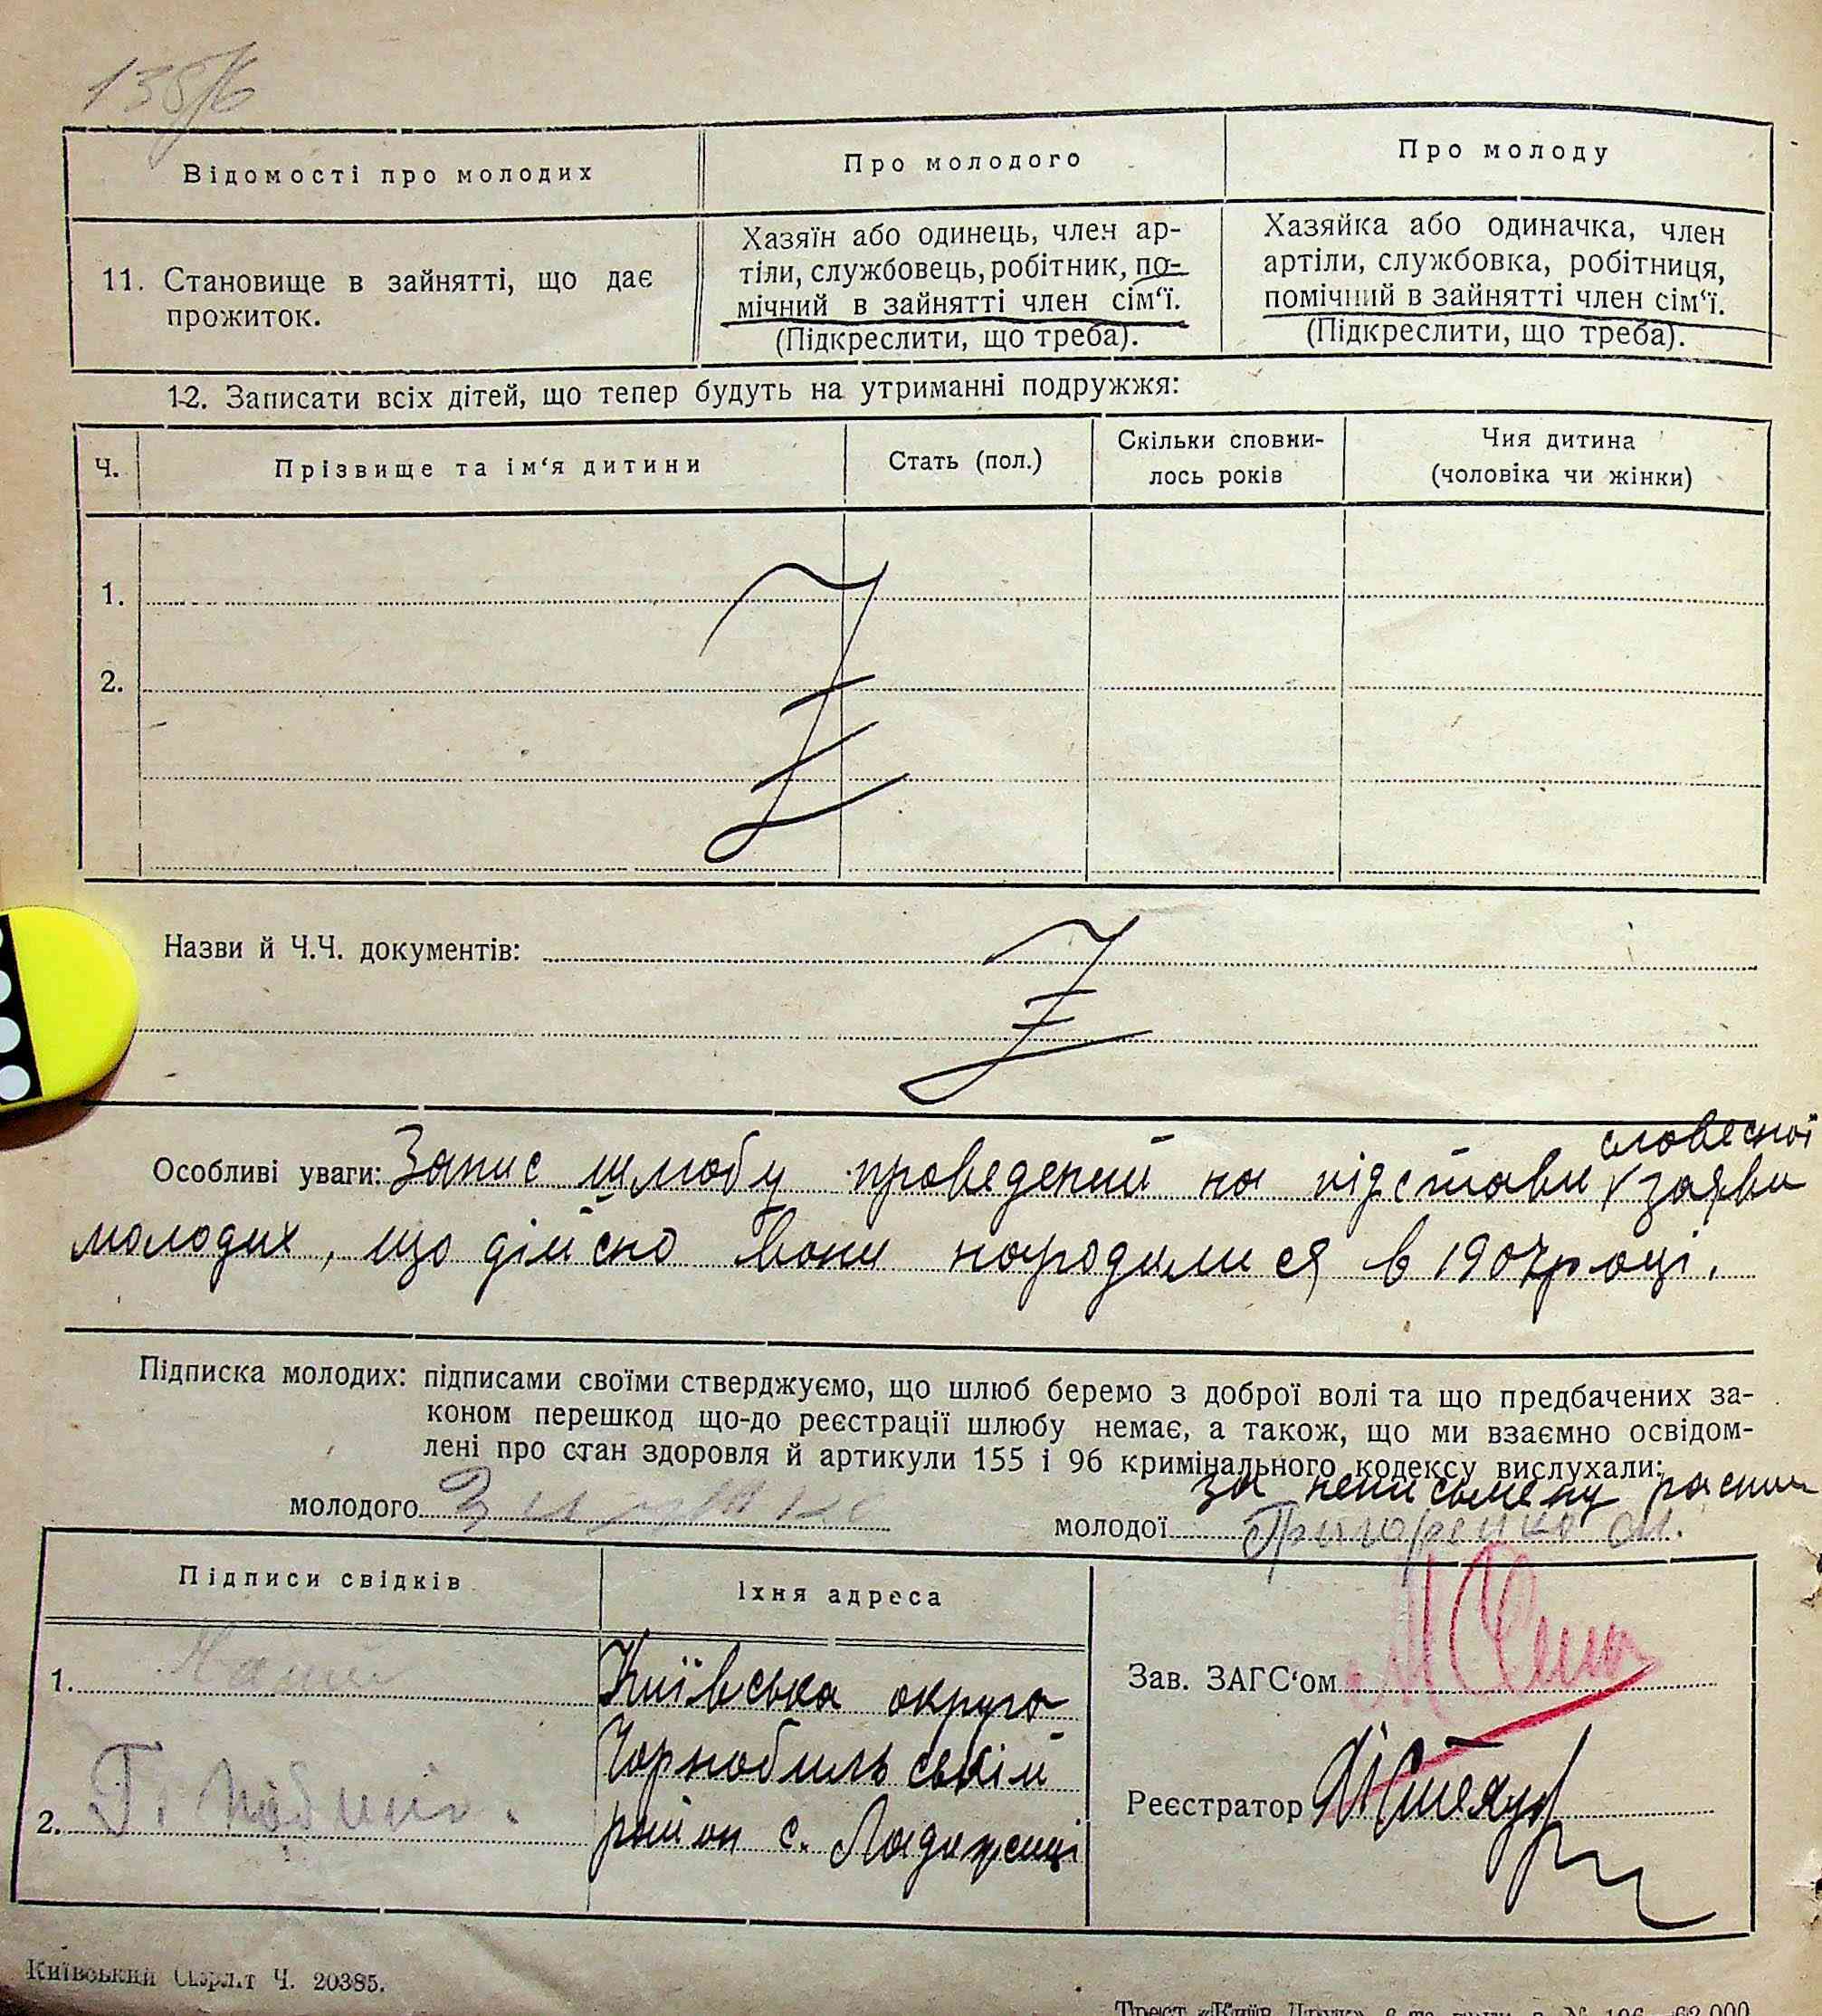 Відомості про молодих
Про молодого
Про молоду
11. Становище в зайнятті, що дає
прожиток.
Хазяїн або одинець, член ар-
тіли, службовець, робітник, по-
мічний в зайнятті член сім‘ї.
(Підкреслити, що треба).
Хазяйка або одиначка, член
артіли, службовка, робітниця,
помічний в зайнятті член сім‘ї.
(Підкреслити, що треба).
12. Записати всіх дітей, що тепер будуть на утриманні подружжя:
Ч.
Прізвище та ім‘я дитини
Стать (пол.)
Скільки сповни-
лось років
Чия дитина
(чоловіка чи жінки)
1.
2.
Назви й Ч.Ч. документів:
словесної
Особливі уваги: Запис шлюбу проведений на підстави заяви
молодих, що дійсно вони народилися в 1907 році.
Підписка молодих: підписами своїми стверджуємо, що шлюб беремо з доброї волі та що предбачених за-
коном перешкод що-до реєстрації шлюбу немає, а також, що ми взаємно освідом-
лені про стан здоровля й артикули 155 і 96 кримінального кодексу вислухали:
за неписьмену
молодого
молодої Григоренко
Підписи свідків
Їхня адреса
1.
Київська округа
Чорнобильській
2.
район с. Ладижичі
Зав. ЗАГС‘ом
Реєстратор
Київський Окрліт Ч. 20385.